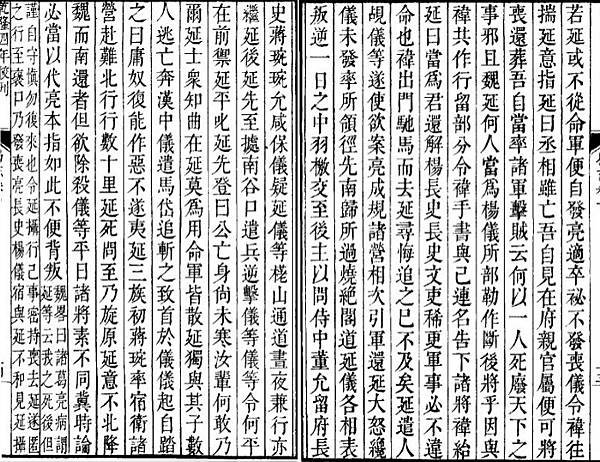 若延或不從命軍便自發亮適卒祕不發喪儀令禕往
揣延意指延曰丞相雖亡吾自見在府親官屬便可將
喪還葬吾自當率諸軍擊賊云何以一人死廢天下之
事邪且魏延何人當爲楊儀所部勒作斷後將乎因與
禕共作行留部分令禕手書與己連名告下諸將禕紿
延曰當爲君還解楊長史長史文吏稀更軍事必不違
命也禕出門馳馬而去延尋悔追之已不及矣延遣人
覘儀等遂使欲案亮成規諸營相次引軍還延大怒纔
儀未發率所領徑先南歸所過燒絕閣道延儀各相表
叛逆一日之中羽檄交至後主以問侍中董允留府長
史蔣琬琬允咸保儀疑延儀等槎山通道晝夜兼行亦
繼延後延先至據南谷口遣兵逆擊儀等儀等令何平
在前禦延平叱延先登曰公亡身尚未寒汝輩何敢乃
爾延士衆知曲在延莫爲用命軍皆散延獨與其子數
人逃亡奔漢中儀遣馬岱追斬之致首於儀儀起自踏
之曰庸奴復能作惡不遂夷延三族初蔣琬率宿衛諸
營赴難北行行數十里延死問至乃旋原延意不北降
魏而南還者但欲除殺儀等平日諸將素不同冀時論
必當以代亮本指如此不便背叛
魏畧曰諸葛亮病謂
延等云我之死後但
謹自守愼勿後來也令延攝行己事密持喪去延遂匿
之行至襃口乃發喪亮長史楊儀宿與延不和見延攝
乾隆四年校刊